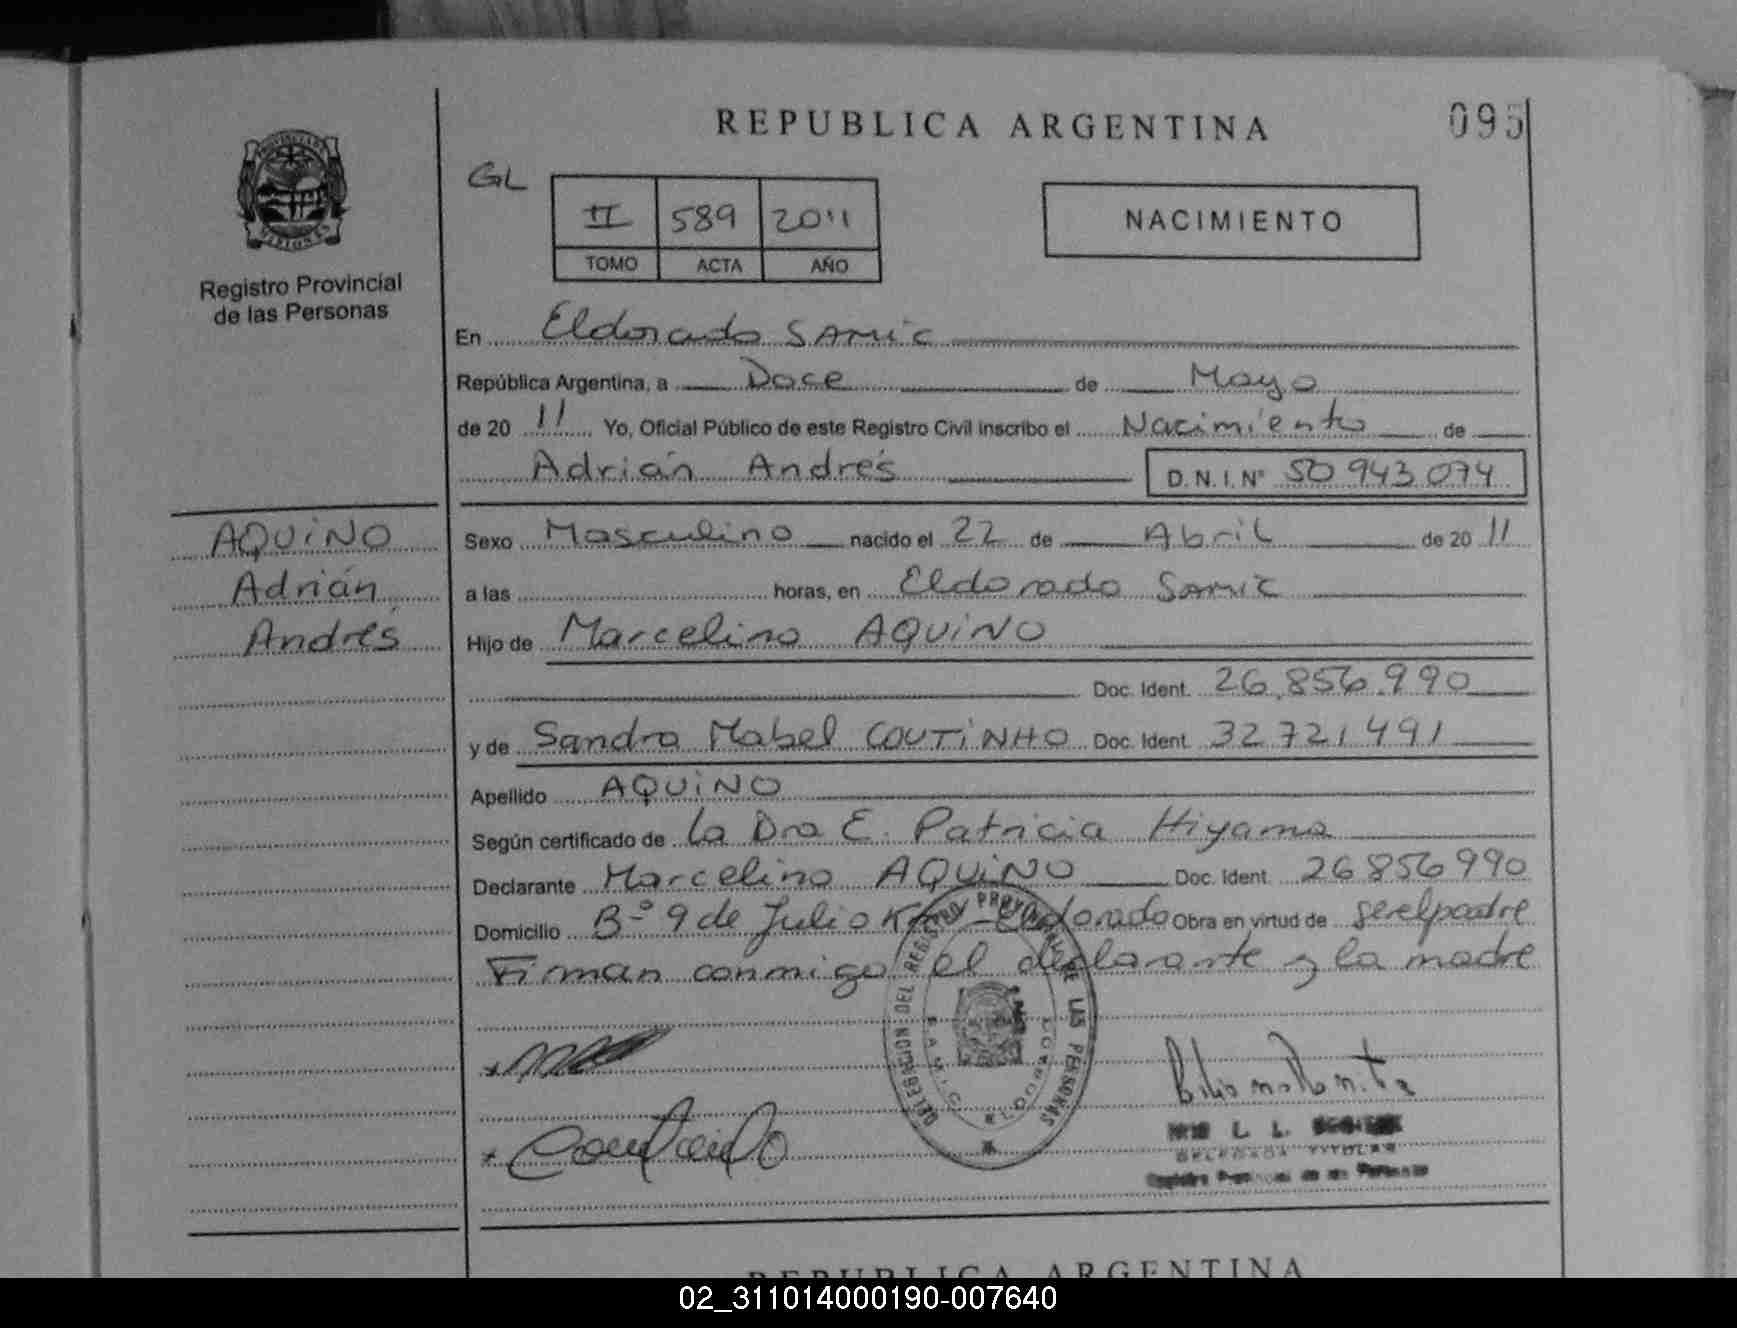 REPUBLICA ARGENTINA
095
PROVINCIA DE MISIONES
Registro Provincial
de las Personas
GL
II 589 2011
TOMO ACTA AÑO
NACIMIENTO
En Eldorado SAMiC
República Argentina, a Doce de Mayo
de 20 11 Yo, Oficial Público de este Registro Civil inscribo el Nacimiento de
Adrián Andrés D.N.I. N° 50 943 074
AQUiNO
Adrián
Andrés
Sexo Masculino nacido el 22 de Abril de 20 11
a las horas, en Eldorado Samic
Hijo de Marcelino AQUiNO
Doc. Ident. 26.856.990
y de Sandra Mabel COUTiNHO Doc. Ident. 32 721 491
Apellido AQUiNO
Según certificado de La Dra E. Patricia Hiyama
Declarante Marcelino AQUiNO Doc. Ident. 26 856 990
Domicilio B-º 9 de Julio Eldorado Obra en virtud de ser el padre
Firman conmigo el declarante y la madre
DELEGACION DEL REGISTRO PROVINCIAL DE LAS PERSONAS
SAMIC ELDORADO
DELEGADA TITULAR
Registro Provincial de las Personas
REPUBLICA ARGENTINA
02_311014000190-007640